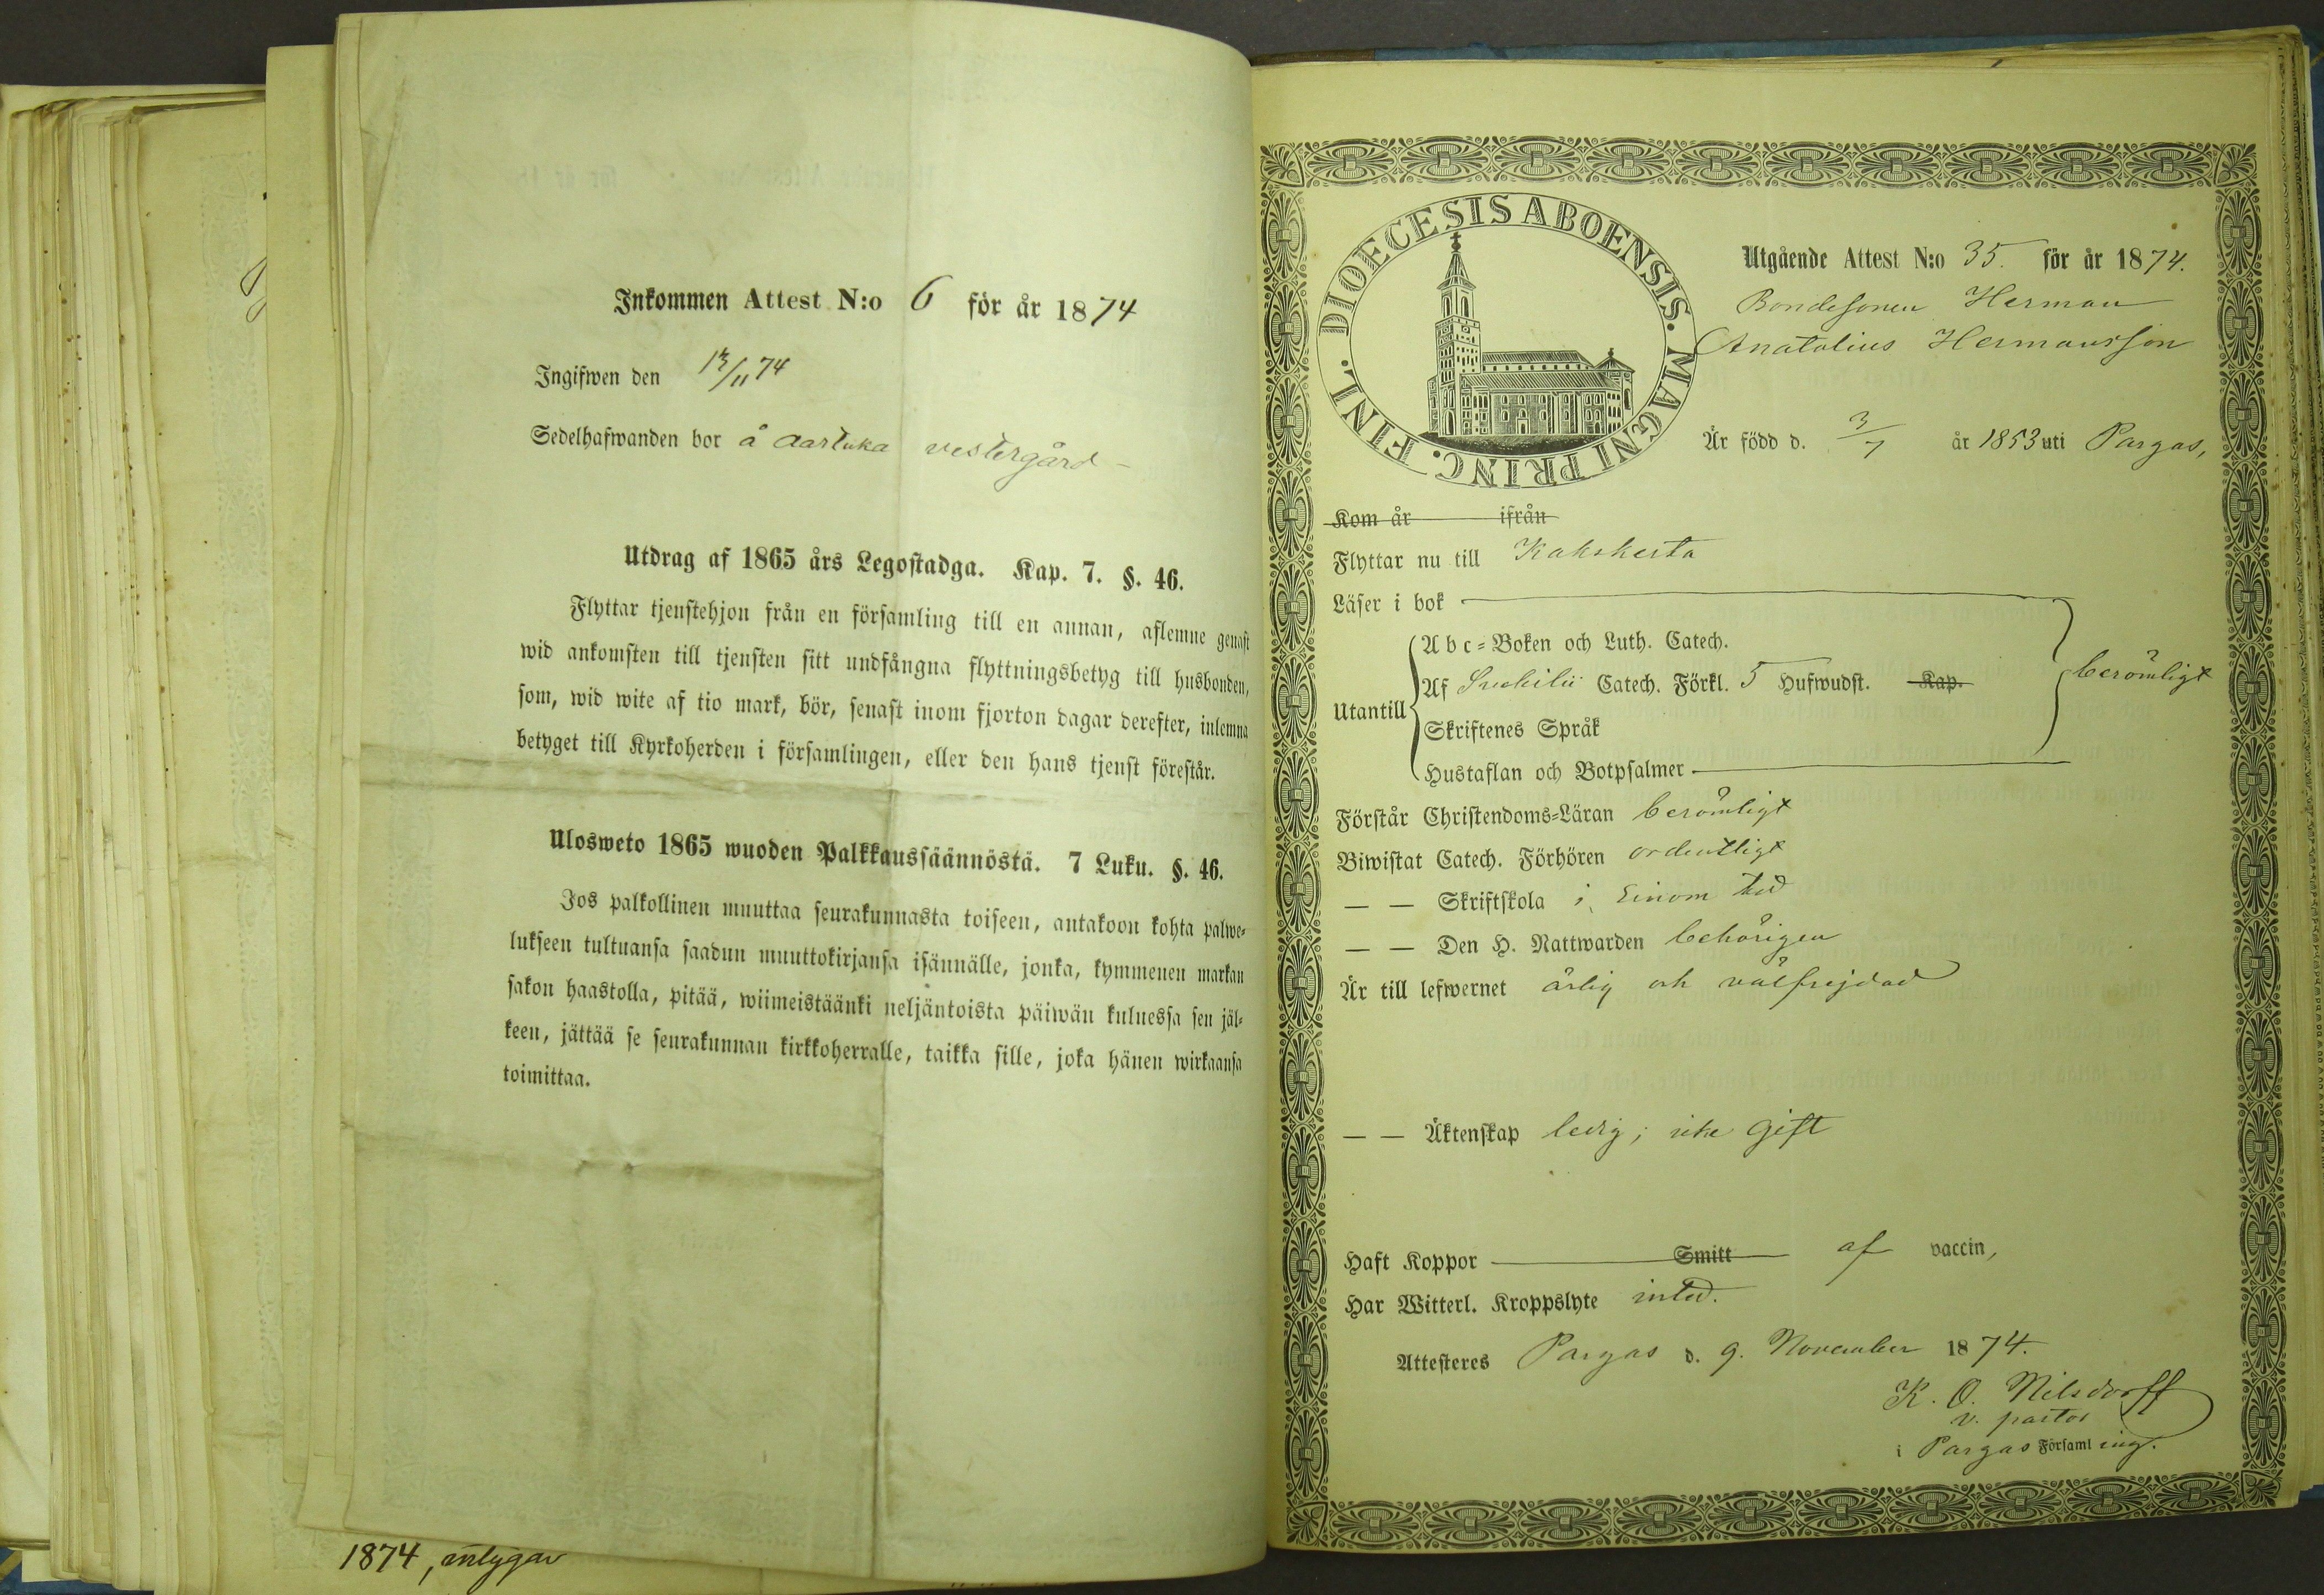 Inkommen Attest N:o 6 för år 1874
Ingifwen den 13/11 74
Sedelhafwanden bor å Aartuka vestergård -
Utdrag af 1865 års Legostadga. Kap. 7. §. 46.
Flyttar tjenstehjon från en församling till en annan, aflemne genast
wid ankomsten till tjensten sitt undfångna flyttningsbetyg till husbonden,
som, wid wite af tio mark, bör, senast inom fjorton dagar derefter, inlemna
betyget till Kyrkoherden i församlingen, eller den hans tjenst förestår.
Ulosweto 1865 wuoden Palkkaussäännöstä. 7 Luku. §. 46.
Jos palkollinen muuttaa seurakunnasta toiseen, antakoon kohta palwe-
lukseen tultuansa saadun muuttokirjansa isännälle, jonka, kymmenen markan
sakon haastolla, pitää, wiimeistäänki neljäntoista päiwän kuluessa sen jäl-
keen, jättää se seurakunnan kirkkoherralle, taikka sille, joka hänen wirkaansa
toimittaa.
1874, intygar
DIOECESIS ABOENSIS. MAGNI PRINC. FINL.
Utgående Attest N:o 35. för år 1874.
Bondesonen Herman
Anatolius Hermansson
Är född d. 3/7 år 1853 uti Pargas,
Kom år ifrån
Flyttar nu till Kakskerta
Läser i bok
Abc-Boken och Luth. Catech.
Utantill Af Svebilii Catech. Förkl. 5 Hufwudst. Kap. berömligt
Skriftenes Språk
Hustaflan och Botpsalmer
Förstår Christendoms-Läran berömligt
Biwistat Catech. Förhören ordentligt
— — Skriftskola i sinom tid
— — Den H. Nattwarden behörigen
Är till lefwernet ärlig och välfrejdad
— — Äktenskap ledig; icke gift
Haft Koppor Smitt af vaccin,
Har Witterl. Kroppslyte intet.
Attesteres Pargas d. 9. November 1874.
K. O. Nilsdorff
v. pastor
i Pargas Församling.